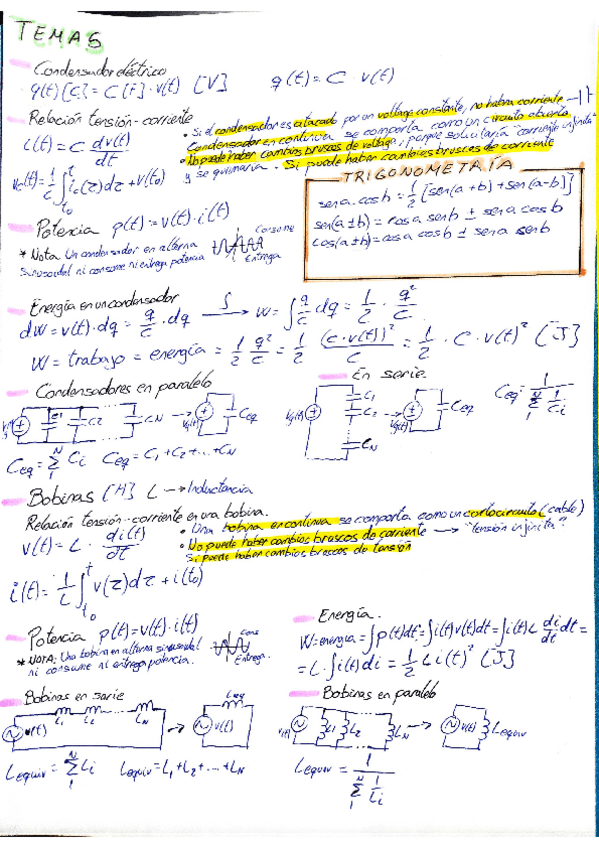 TEMA 5
Condensador eléctrico
q(t) [C] = C [F] · v(t) [V]     q(t) = C · v(t)
Relación tensión-corriente
i(t) = C dv(t)/dt
v_c(t) = 1/C ∫_{t_0}^{t} i_c(τ) dτ + v(t_0)
• Si el condensador es atacado por un voltage constante, no habrá corriente
Condensador en continua se comporta como un circuito abierto.
• No puede haber cambios bruscos de voltage, porque solicitaria "corriente infinita"
y se quemaria. Si puede haber cambios bruscos de corriente
TRIGONOMETRÍA
sen a · cos b = 1/2 [sen(a+b) + sen(a-b)]
sen(a±b) = cos a sen b ± sen a cos b
cos(a±b) = cos a cos b ± sen a sen b
Potencia p(t) = v(t) · i(t)
* Nota: Un condensador en alterna
sinusoidal ni consume ni entrega potencia
Consume
Entrega
Energía en un condensador
dW = v(t) · dq = q/C · dq ∫→ W = ∫ q/C dq = 1/2 · q²/C
W = trabajo = energía = 1/2 q²/C = 1/2 (C · v(t))²/C = 1/2 · C · v(t)² [J]
Condensadores en paralelo
Vg(t) C1 C2 CN → Vg(t) Ceq
Ceq = Σ_1^N Ci   Ceq = C1 + C2 + ... + CN
En serie.
Vg(t) C1 C2 CN → Vg(t) Ceq
Ceq = 1/(Σ_1^N 1/Ci)
Bobinas [H] L → Inductancia
Relación tensión-corriente en una bobina.
v(t) = L · di(t)/dt
i(t) = 1/L ∫_{t_0}^{t} v(τ) dτ + i(t_0)
• Una bobina en continua se comporta como un cortocircuito (cable)
• No puede haber cambios bruscos de corriente → "tensión infinita"
Si puede haber cambios bruscos de tensión
Potencia p(t) = v(t) · i(t)
* NOTA: Una bobina en alterna sinusoidal
ni consume ni entrega potencia.
Cons
Entrega.
Energía.
W = energía = ∫p(t)dt = ∫i(t)v(t)dt = ∫i(t) L di/dt dt =
= L · ∫i(t)di = 1/2 L i(t)² [J]
Bobinas en serie
v(t) L1 L2 LN → v(t) Leq
Lequiv = Σ_1^N Li   Lequiv = L1 + L2 + ... + LN
Bobinas en paralelo
v(t) L1 L2 LN → v(t) Lequiv
Lequiv = 1/(Σ_1^N 1/Li)